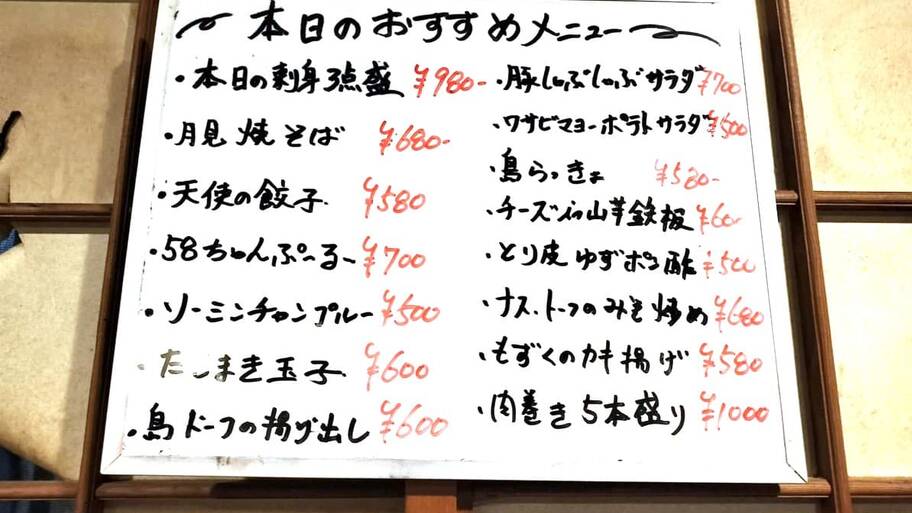 本日のおすすめメニュー
・本日の刺身3点盛 ¥980-
・月見焼そば ¥680-
・天使の餃子 ¥580
・58ちゃんぷ〜るー ¥700
・ソーミンチャンプルー ¥500
・だしまき玉子 ¥600
・島ドーフの揚げ出し ¥600
・豚しゃぶしゃぶサラダ ¥700
・ワサビマヨーポテトサラダ ¥500
・島らっきょ ¥580-
・チーズin山芋鉄板 ¥600
・とり皮ゆずポン酢 ¥500
・ナス、トーフのみそ炒め ¥680
・もずくのカキ揚げ ¥580
・肉巻き5本盛り ¥1000